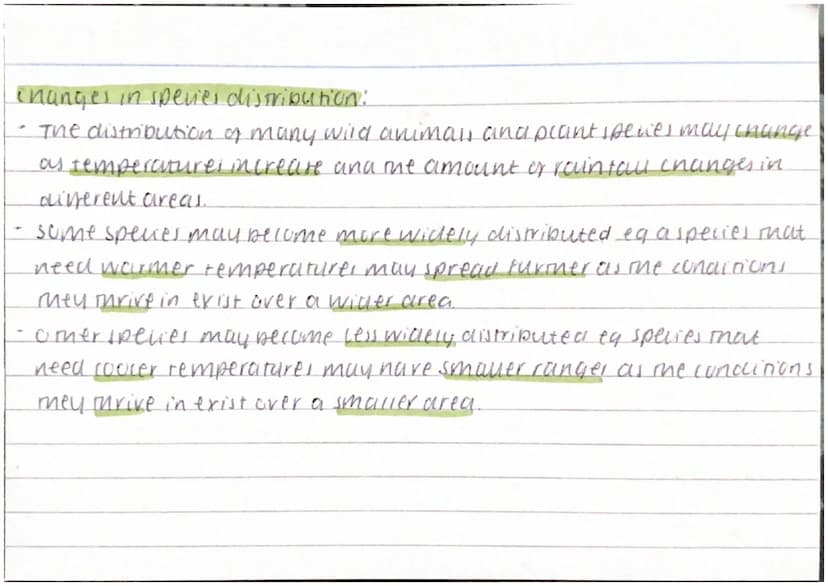 changes in species distribution:
- The distribution of many wild animals and plant species may change
as temperatures increase and the amount of rainfall changes in
different areas.
- some species may become more widely distributed eg a species that
need warmer temperatures may spread further as the conditions
they thrive in exist over a wider area.
- other species may become less widely distributed eg species that
need cooler temperatures may have smaller ranges as the conditions
they thrive in exist over a smaller area.